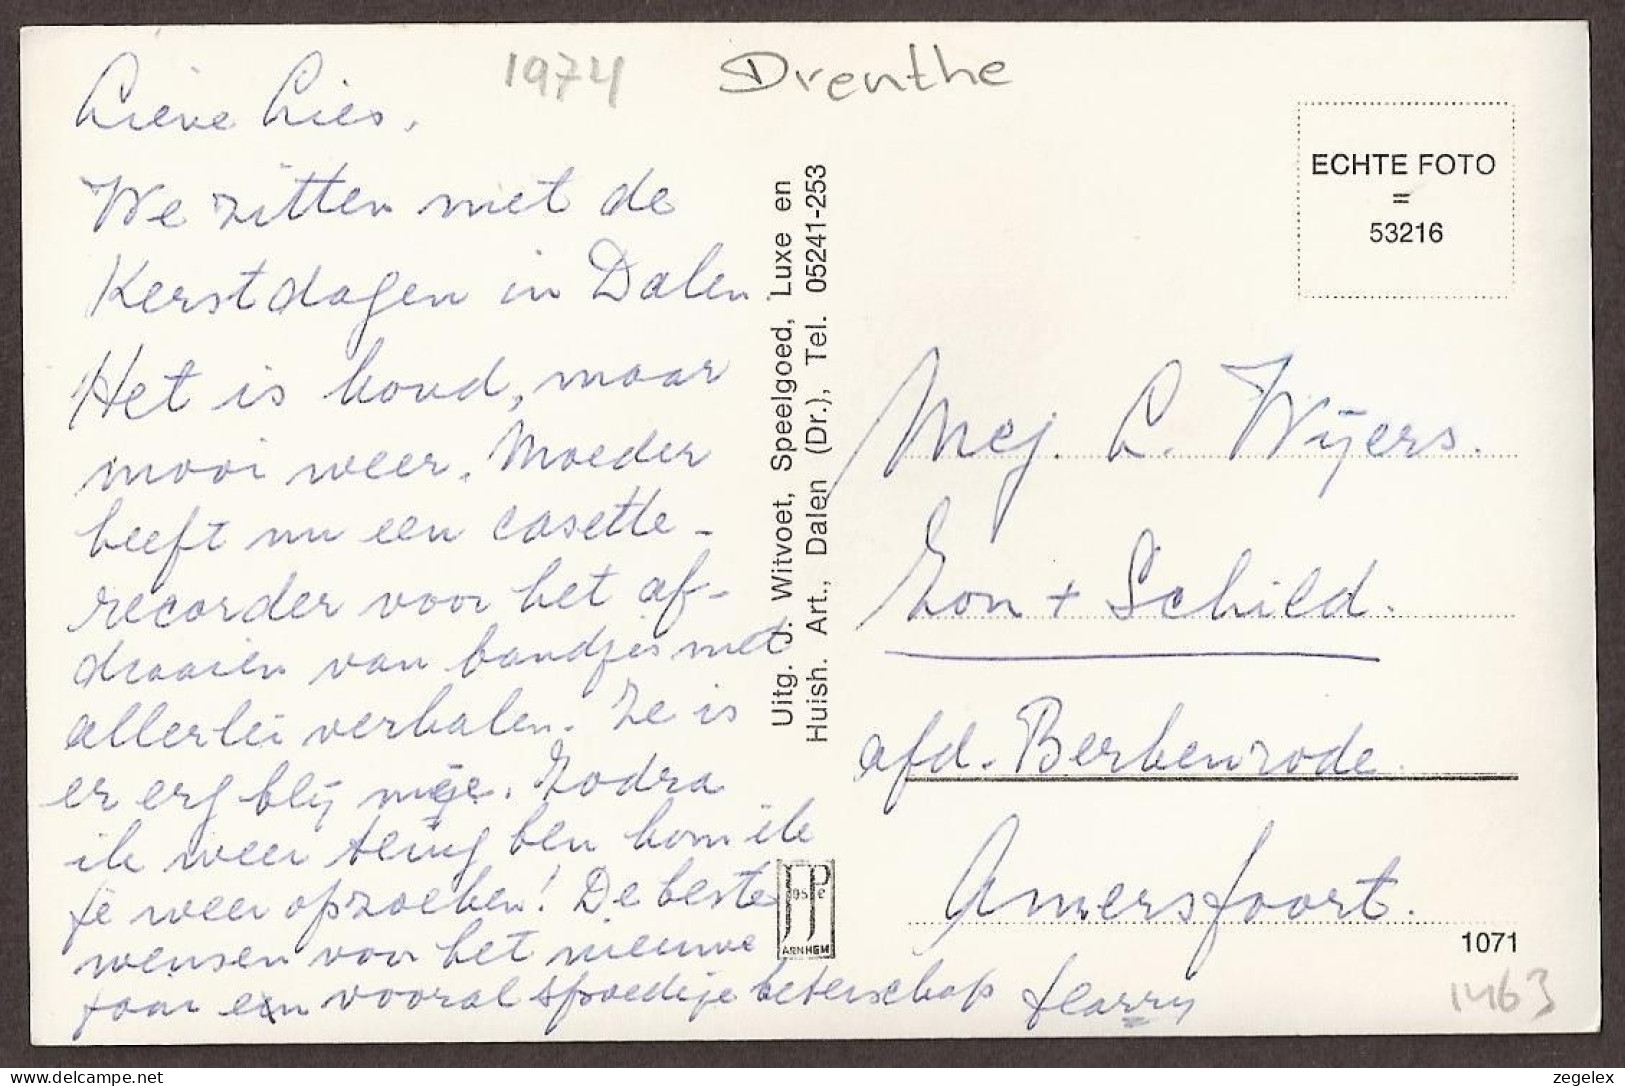 1974
Drenthe
Lieve Lies.
We zitten met de
Kerstdagen in Dalen.
Het is koud, maar
mooi weer. Moeder
heeft nu een casette-
recorder voor het af-
draaien van bandjes met
allerlei verhalen. Ze is
er erg blij mee. Zodra
ik weer terug ben kom ik
je weer opzoeken! De beste
wensen voor het nieuwe
jaar en vooral spoedige beterschap Harry
Uitg. J. Witvoet, Speelgoed, Luxe en
Huish. Art., Dalen (Dr.), Tel. 05241-253
JosPe
ARNHEM
ECHTE FOTO
=
53216
Mej. L. Wijers.
Zon + Schild.
afd. Berkenrode.
Amersfoort.
1071
1463
© zegelex.com
zegelex